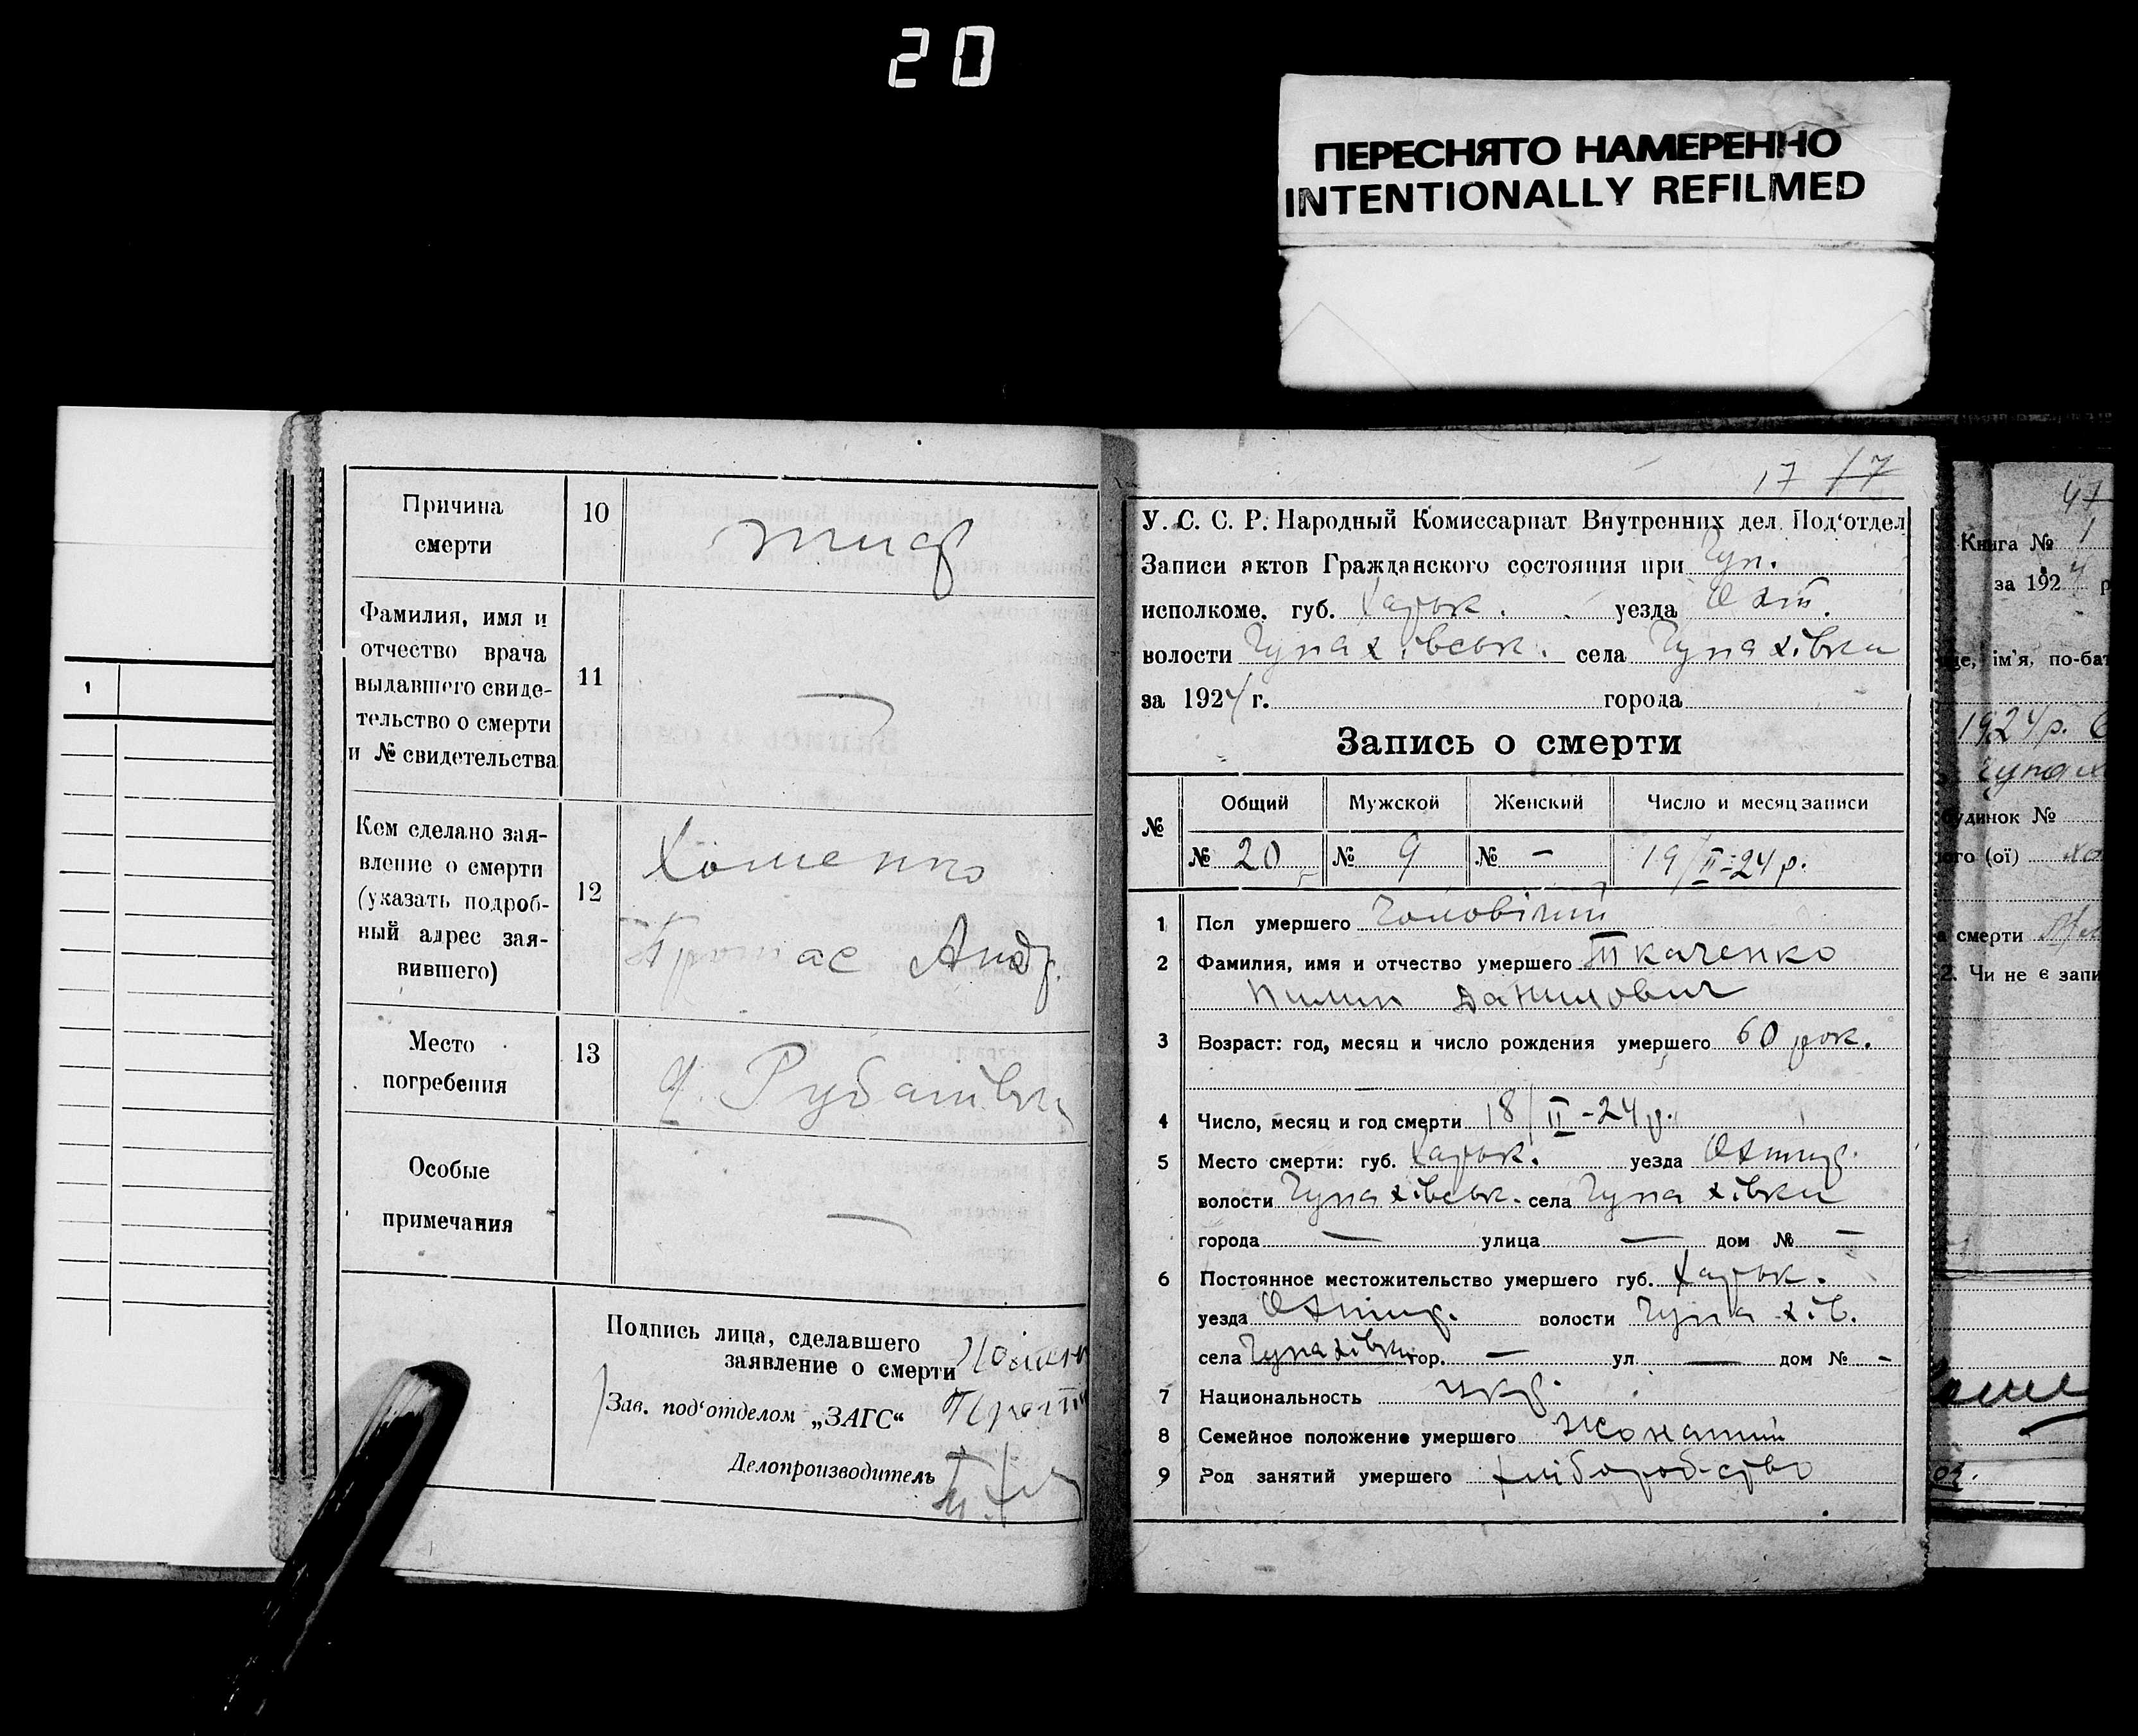 20
ПЕРЕСНЯТО НАМЕРЕННО
INTENTIONALLY REFILMED
1
Причина
смерти
10
тиф
Фамилия, имя и
отчество врача
выдавшего свиде-
тельство о смерти
и № свидетельства
11
—
Кем сделано зая-
вление о смерти
(указать подроб-
ный адрес зая-
вившего)
12
Хоменко
Протас Андр.
Место
погребения
13
Особые
примечания
—
Подпись лица, сделавшего
заявление о смерти
Зав. под'отделом „ЗАГС“
Делопроизводитель
17 17
У. С. С. Р. Народный Комиссариат Внутренних дел Под'отдел
Записи актов Гражданского состояния при Чуп.
исполкоме, губ. Харьк. уезда Охт.
волости Чупахівськ. села Чупахівки
за 1924 г. города
Запись о смерти
№ Общий Мужской Женский Число и месяц записи
№ 20 № 9 № – 19/II-24 р.
1 Пол умершего Чоловічий
2 Фамилия, имя и отчество умершего Ткаченко
Пилип Данилович
3 Возраст: год, месяц и число рождения умершего 60 рок.
—
4 Число, месяц и год смерти 18/II-24 р.
5 Место смерти: губ. Харьк. уезда Охтир.
волости Чупахівськ. села Чупахівки
города — улица — дом № —
6 Постоянное местожительство умершего губ. Харьк.
уезда Охтир. волости Чупахів.
села Чупахівки гор. — ул — дом № –
7 Национальность укр.
8 Семейное положение умершего Жонатий
9 Род занятий умершего хліборобство
47
Книга № 1
за 1924 р
ім'я, по-бат
1924 р.
Чупах
будинок №
ого (ої)
а смерти
2. Чи не є запи